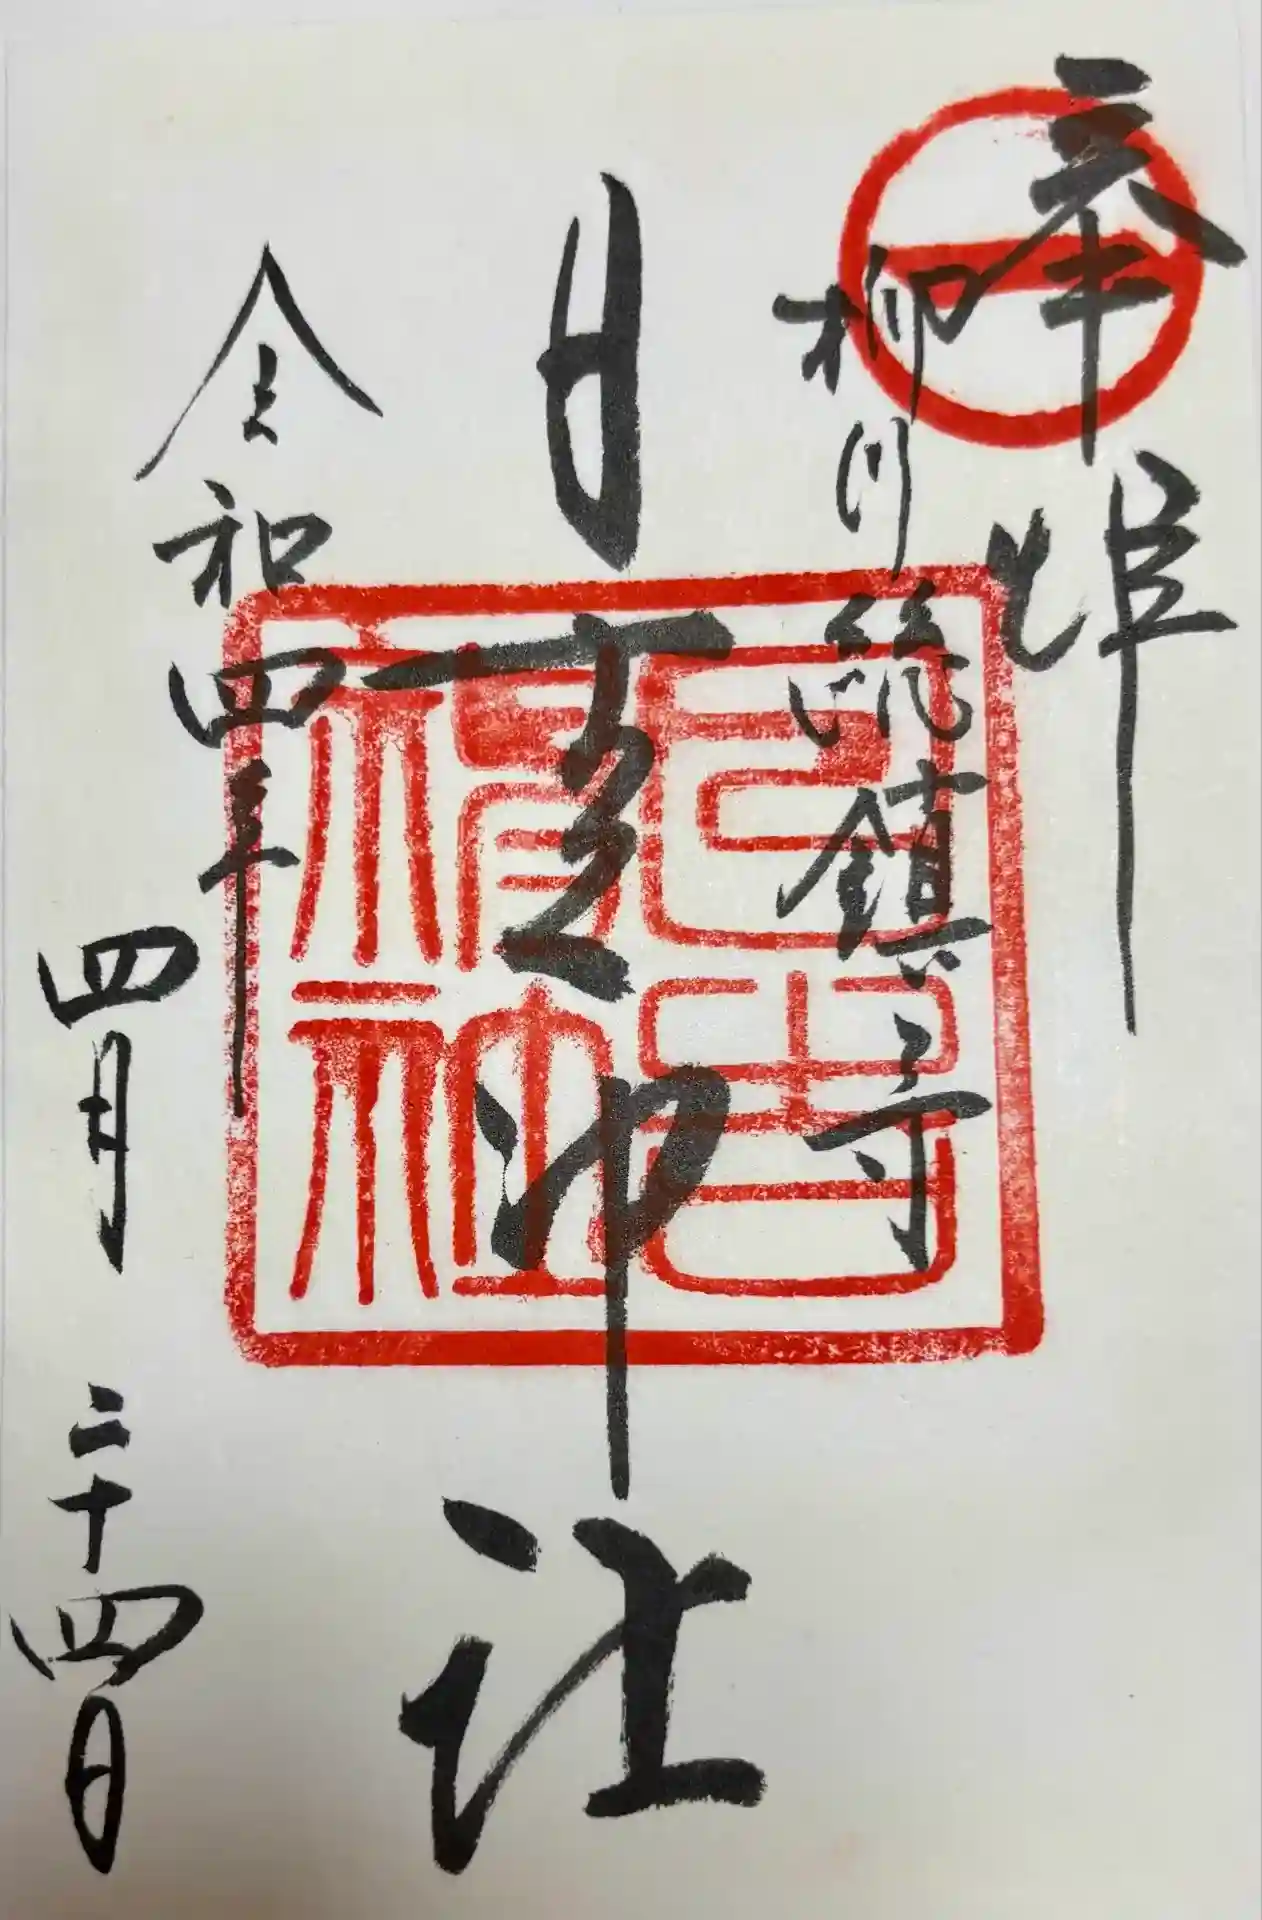 奉拝
柳川総鎮守
日吉神社
令和四年
四月二十四日
日吉
神社